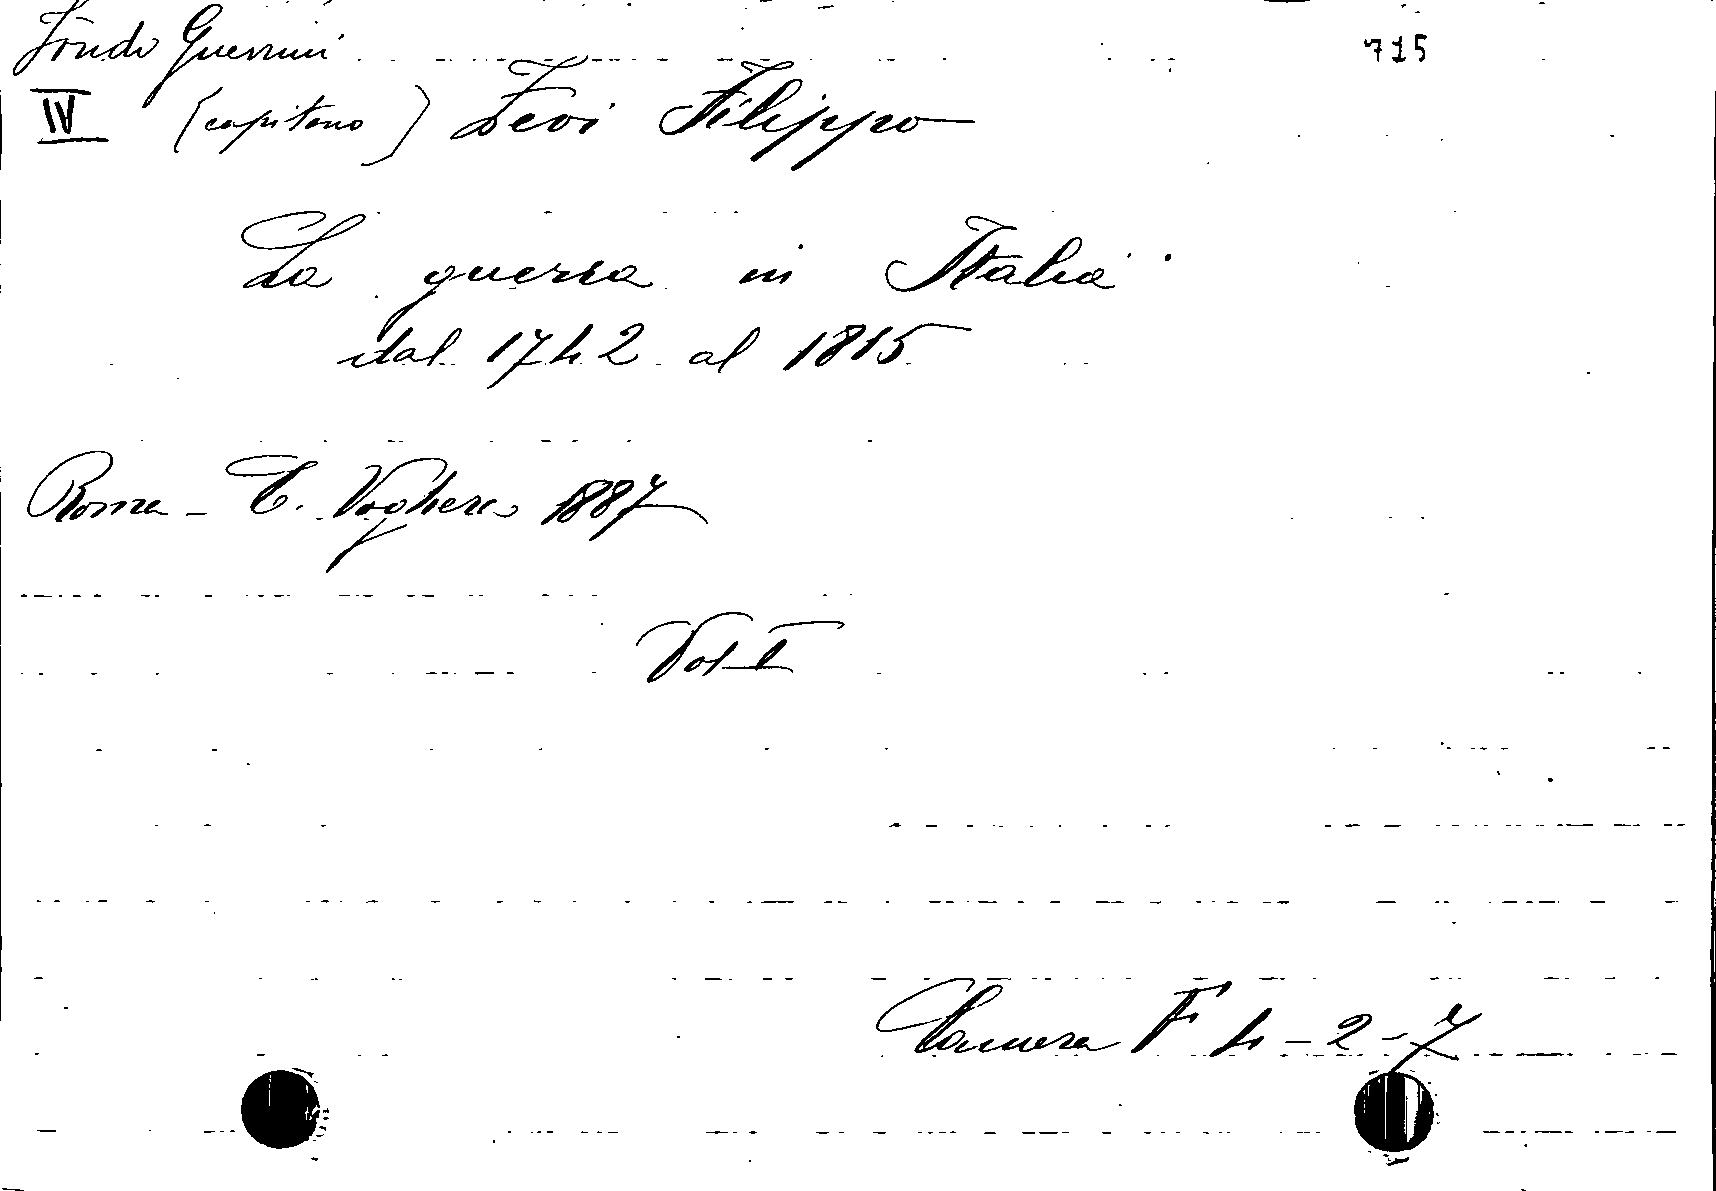 Fondo Guerrini 715
IV (capitano) Zevi Filippo
La guerra in Italia
dal 1742 al 1815
Roma - C. Voghera 1887
Vol I
Camera F 4-2-7